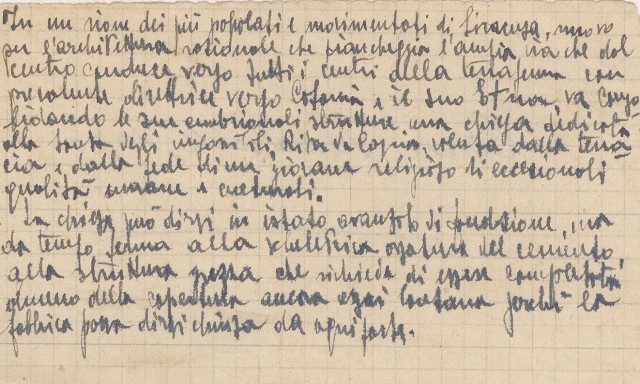 In un rione dei più popolati e movimentati di Siracusa, nuovo
per l'architettura razionale che fiancheggia l'ampia via che dal
centro conduce verso tutti i centri della terraferma con
prevalente direttrice verso Catania e il suo va conso
lidando le sue embrionali strutture una chiesa dedicata
alla Santa degli impossibili, Rita da Cascia, voluta dalla tena
cia e dalla fede di un giovane religioso di eccezionali
qualità umane e culturali.
La chiesa può dirsi in istato avanzato di fondazione, ma
da tempo ferma alla scheletrica ossatura del cemento,
alla struttura grezza che richiede di essere completata
almeno della copertura ancora oggi lontana perché la
fabbrica possa dirsi chiusa da ogni parte.